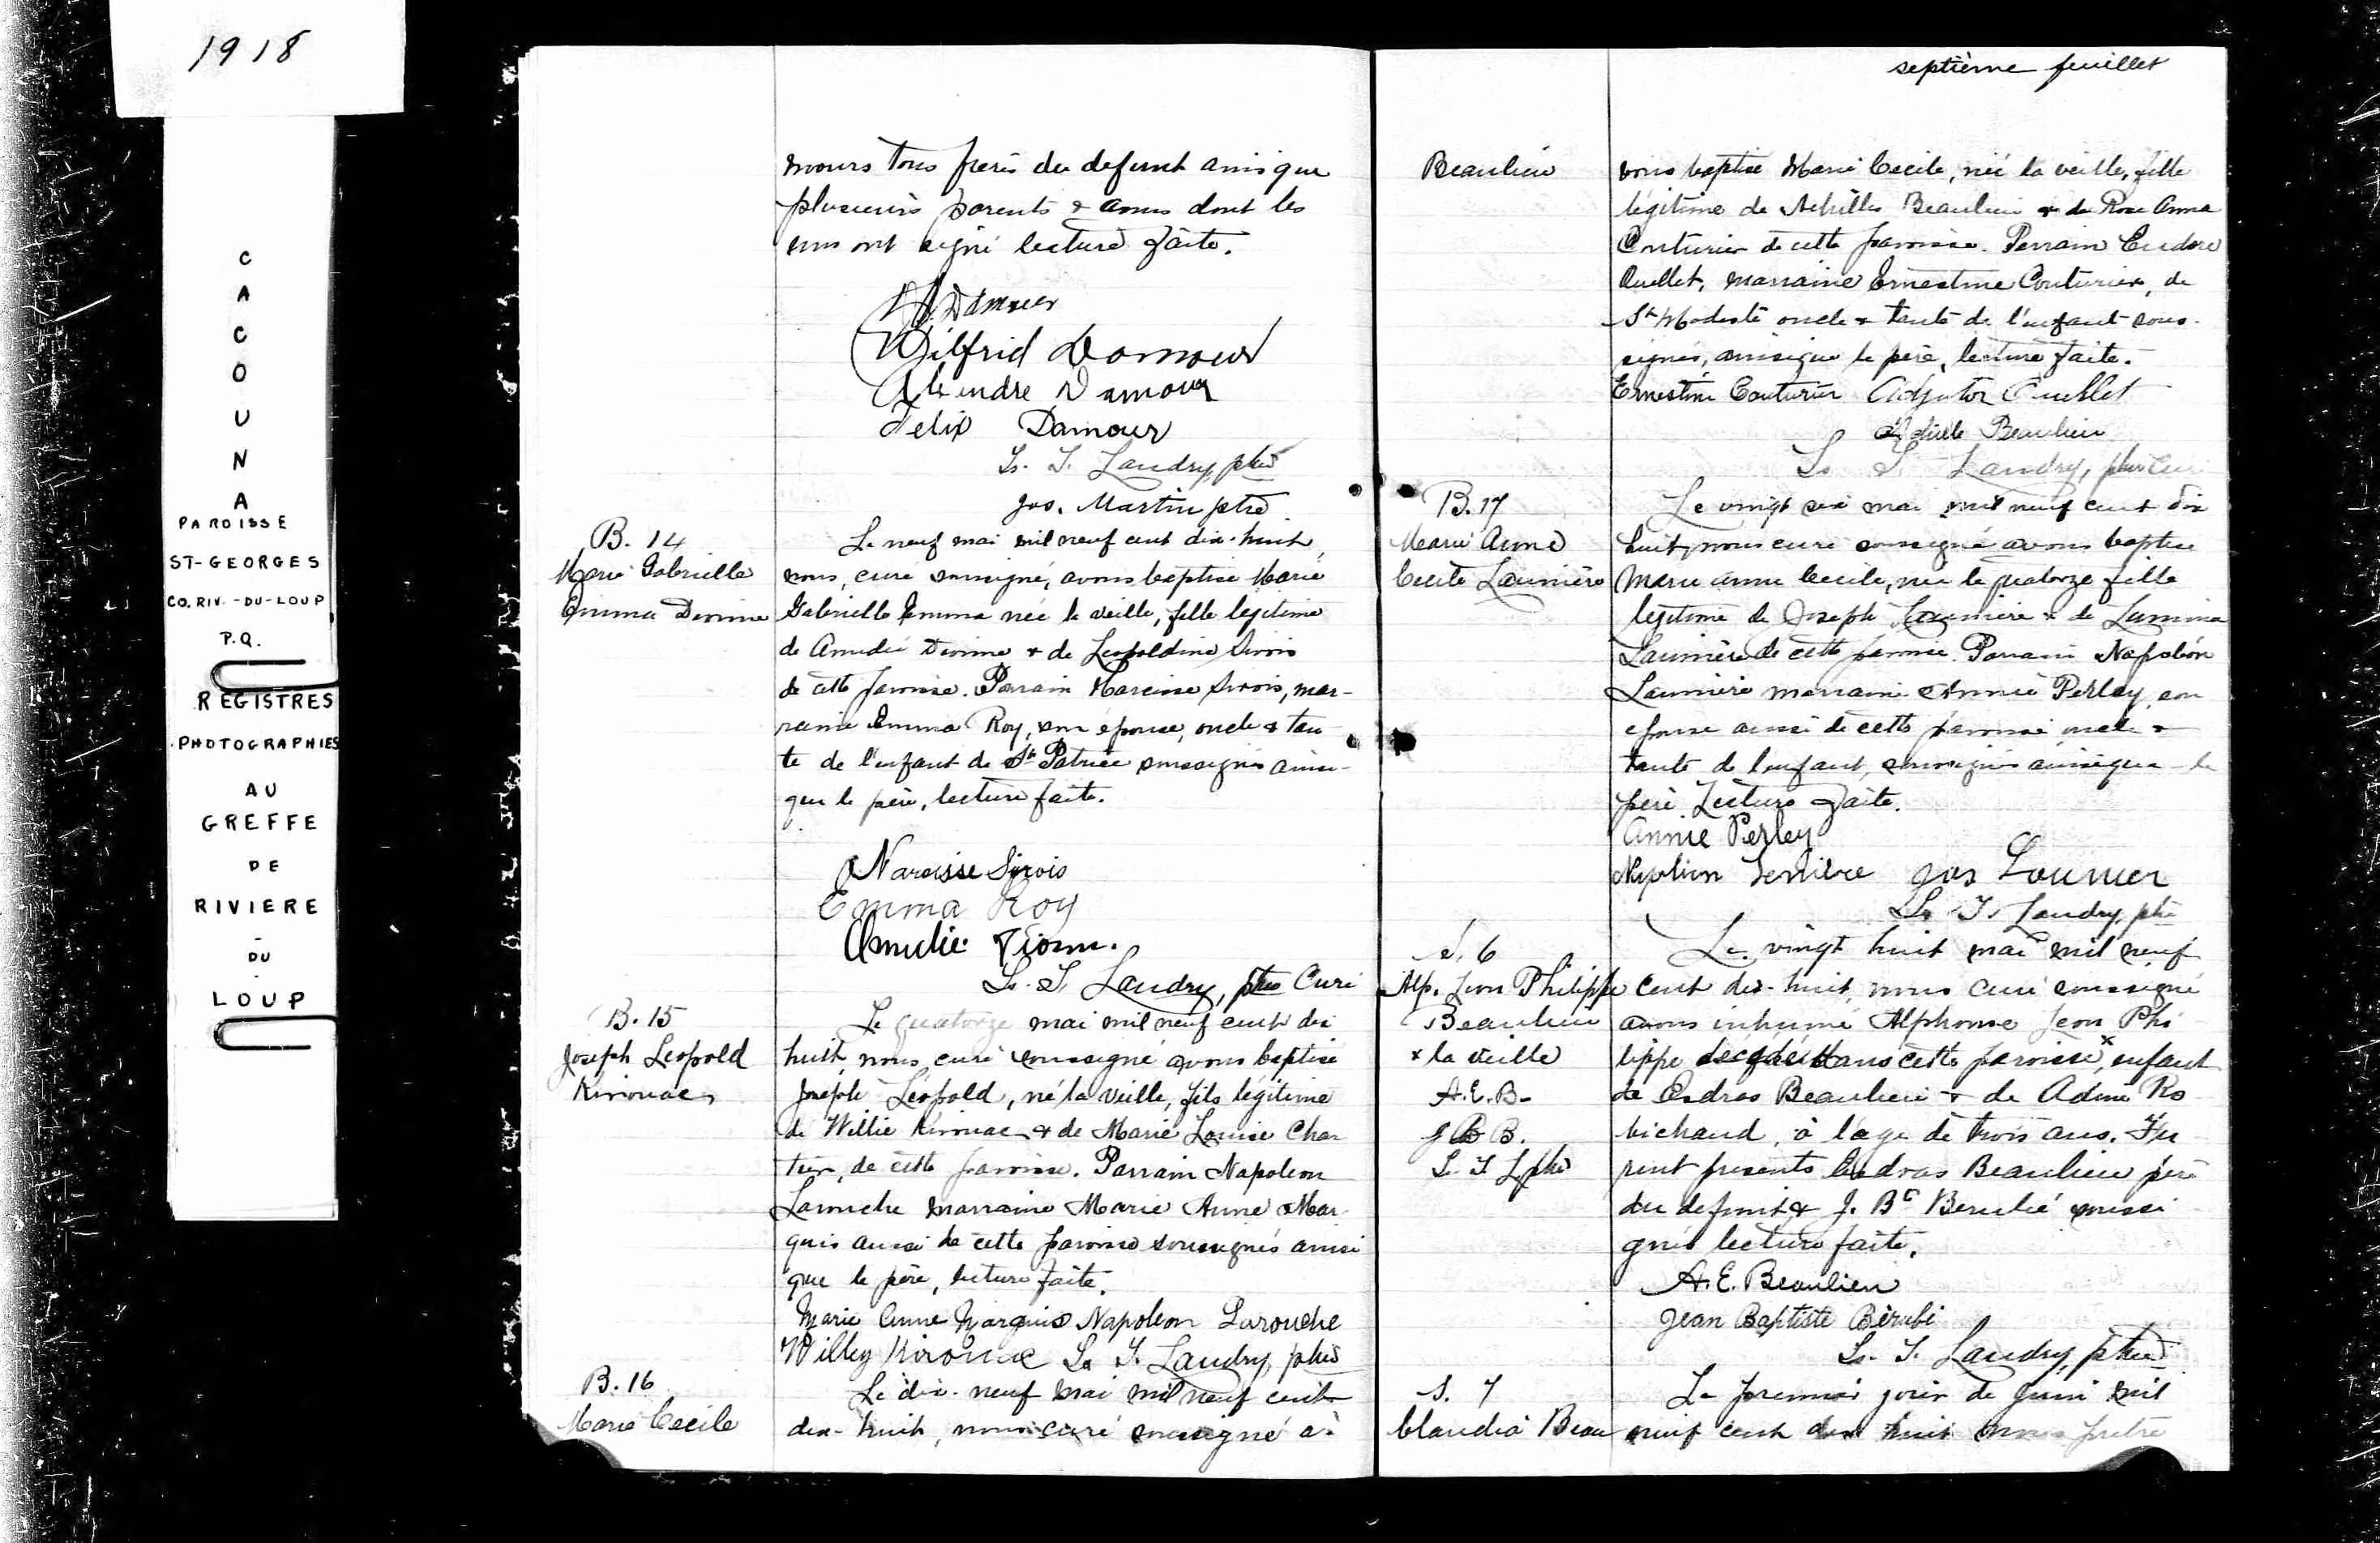 1918
C
A
C
O
U
N
A
PAROISSE
ST-GEORGES
CO. RIV.-DU-LOUP
P.Q.
REGISTRES
PHOTOGRAPHIES
AU
GREFFE
DE
RIVIERE
-
DU
-
LOUP
mours tous frères du defunt ainsi que
plusieurs parents & amis dont les
uns ont signé lecture faite.
Damour
Wilfrid Damour
Damour
Felix Damour
Ls. J. Landry, ptre
Jos. Martin ptre
B. 14
Marie Gabrielle
Emma Dionne
Le neuf mai mil neuf cent dix-huit
nous, curé soussigné, avons baptisé Marie
Gabrielle Emma née la veille, fille légitime
de Amédée Dionne & de Leopoldine Sirois
de cette paroisse. Parrain Narcisse Sirois, mar-
raine Emma Roy, son épouse, oncle & tan
te de l'enfant de St Patrice soussignés ainsi
que le père, lecture faite.
Narcisse Sirois
Emma Roy
Amédée Dionne.
Ls. J. Landry, ptre Curé
B. 15
Joseph Leopold
Kirouac
Le quatorze mai mil neuf cent dix
huit, nous curé soussigné avons baptisé
Joseph Léopold, né la veille, fils légitime
de Willie Kirouac & de Marie Louise Char
tier, de cette paroisse. Parrain Napoleon
Larouche marraine Marie Anne Mar
quis aussi de cette paroisse soussignés ainsi
que le père, lecture faite.
Marie Anne Marquis Napoleon Larouche
Willey Kirouac Ls J. Landry, ptre
B. 16
Marie Cecile
Le dix-neuf mai mil neuf cent
dix-huit, nous curé soussigné a-
septième feuillet
Beaulieu
vons baptisé Marie Cecile, née la veille, fille
légitime de Achille Beaulieu & de Rose Anna
Couturier de cette paroisse. Parrain Eudore
Ouellet, marraine Ernestine Couturier, de
St Modeste oncle & tante de l'enfant sous-
signés, ainsi que le père, lecture faite.
Ernestine Couturier Adjutor Ouellet
Achille Beaulieu
Ls J. Landry, ptre Curé
B. 17
Marie Anne
Cecile Laumière
Le vingt six mai mil neuf cent dix
huit, nous curé soussigné avons baptisé
Marie Anne Cecile, née le quatorze fille
légitime de Joseph Laumière & de Lumina
Laumière de cette paroisse. Parrain Napoléon
Laumière marraine Annie Perley son
épouse aussi de cette paroisse oncle &
tante de l'enfant, soussignés ainsi que le
père Lecture faite.
Annie Perley
Jos Lounier
Ls J. Landry ptre
S. 6
Alp. Leon Philippe
Beaulieu
x la veille
A.E.B.
J B B.
L. J L ptre
Le vingt huit mai mil neuf
cent dix-huit, nous curé soussigné
avons inhumé Alphonse Leon Phi
lippe décédé dans cette paroisse x, enfant
de Esdras Beaulieu & de Adine Ro
bichaud, à l'age de trois ans. Fu
rent presents Esdras Beaulieu père
du defunt & J. Bte Berubé soussi
gnés lecture faite.
A. E. Beaulieu
Jean Baptiste Bérubé
Ls. J. Landry, ptre
S. 7
Claudia Beau
Le premier jour de Juin mil
neuf cent dix huit nous prêtre